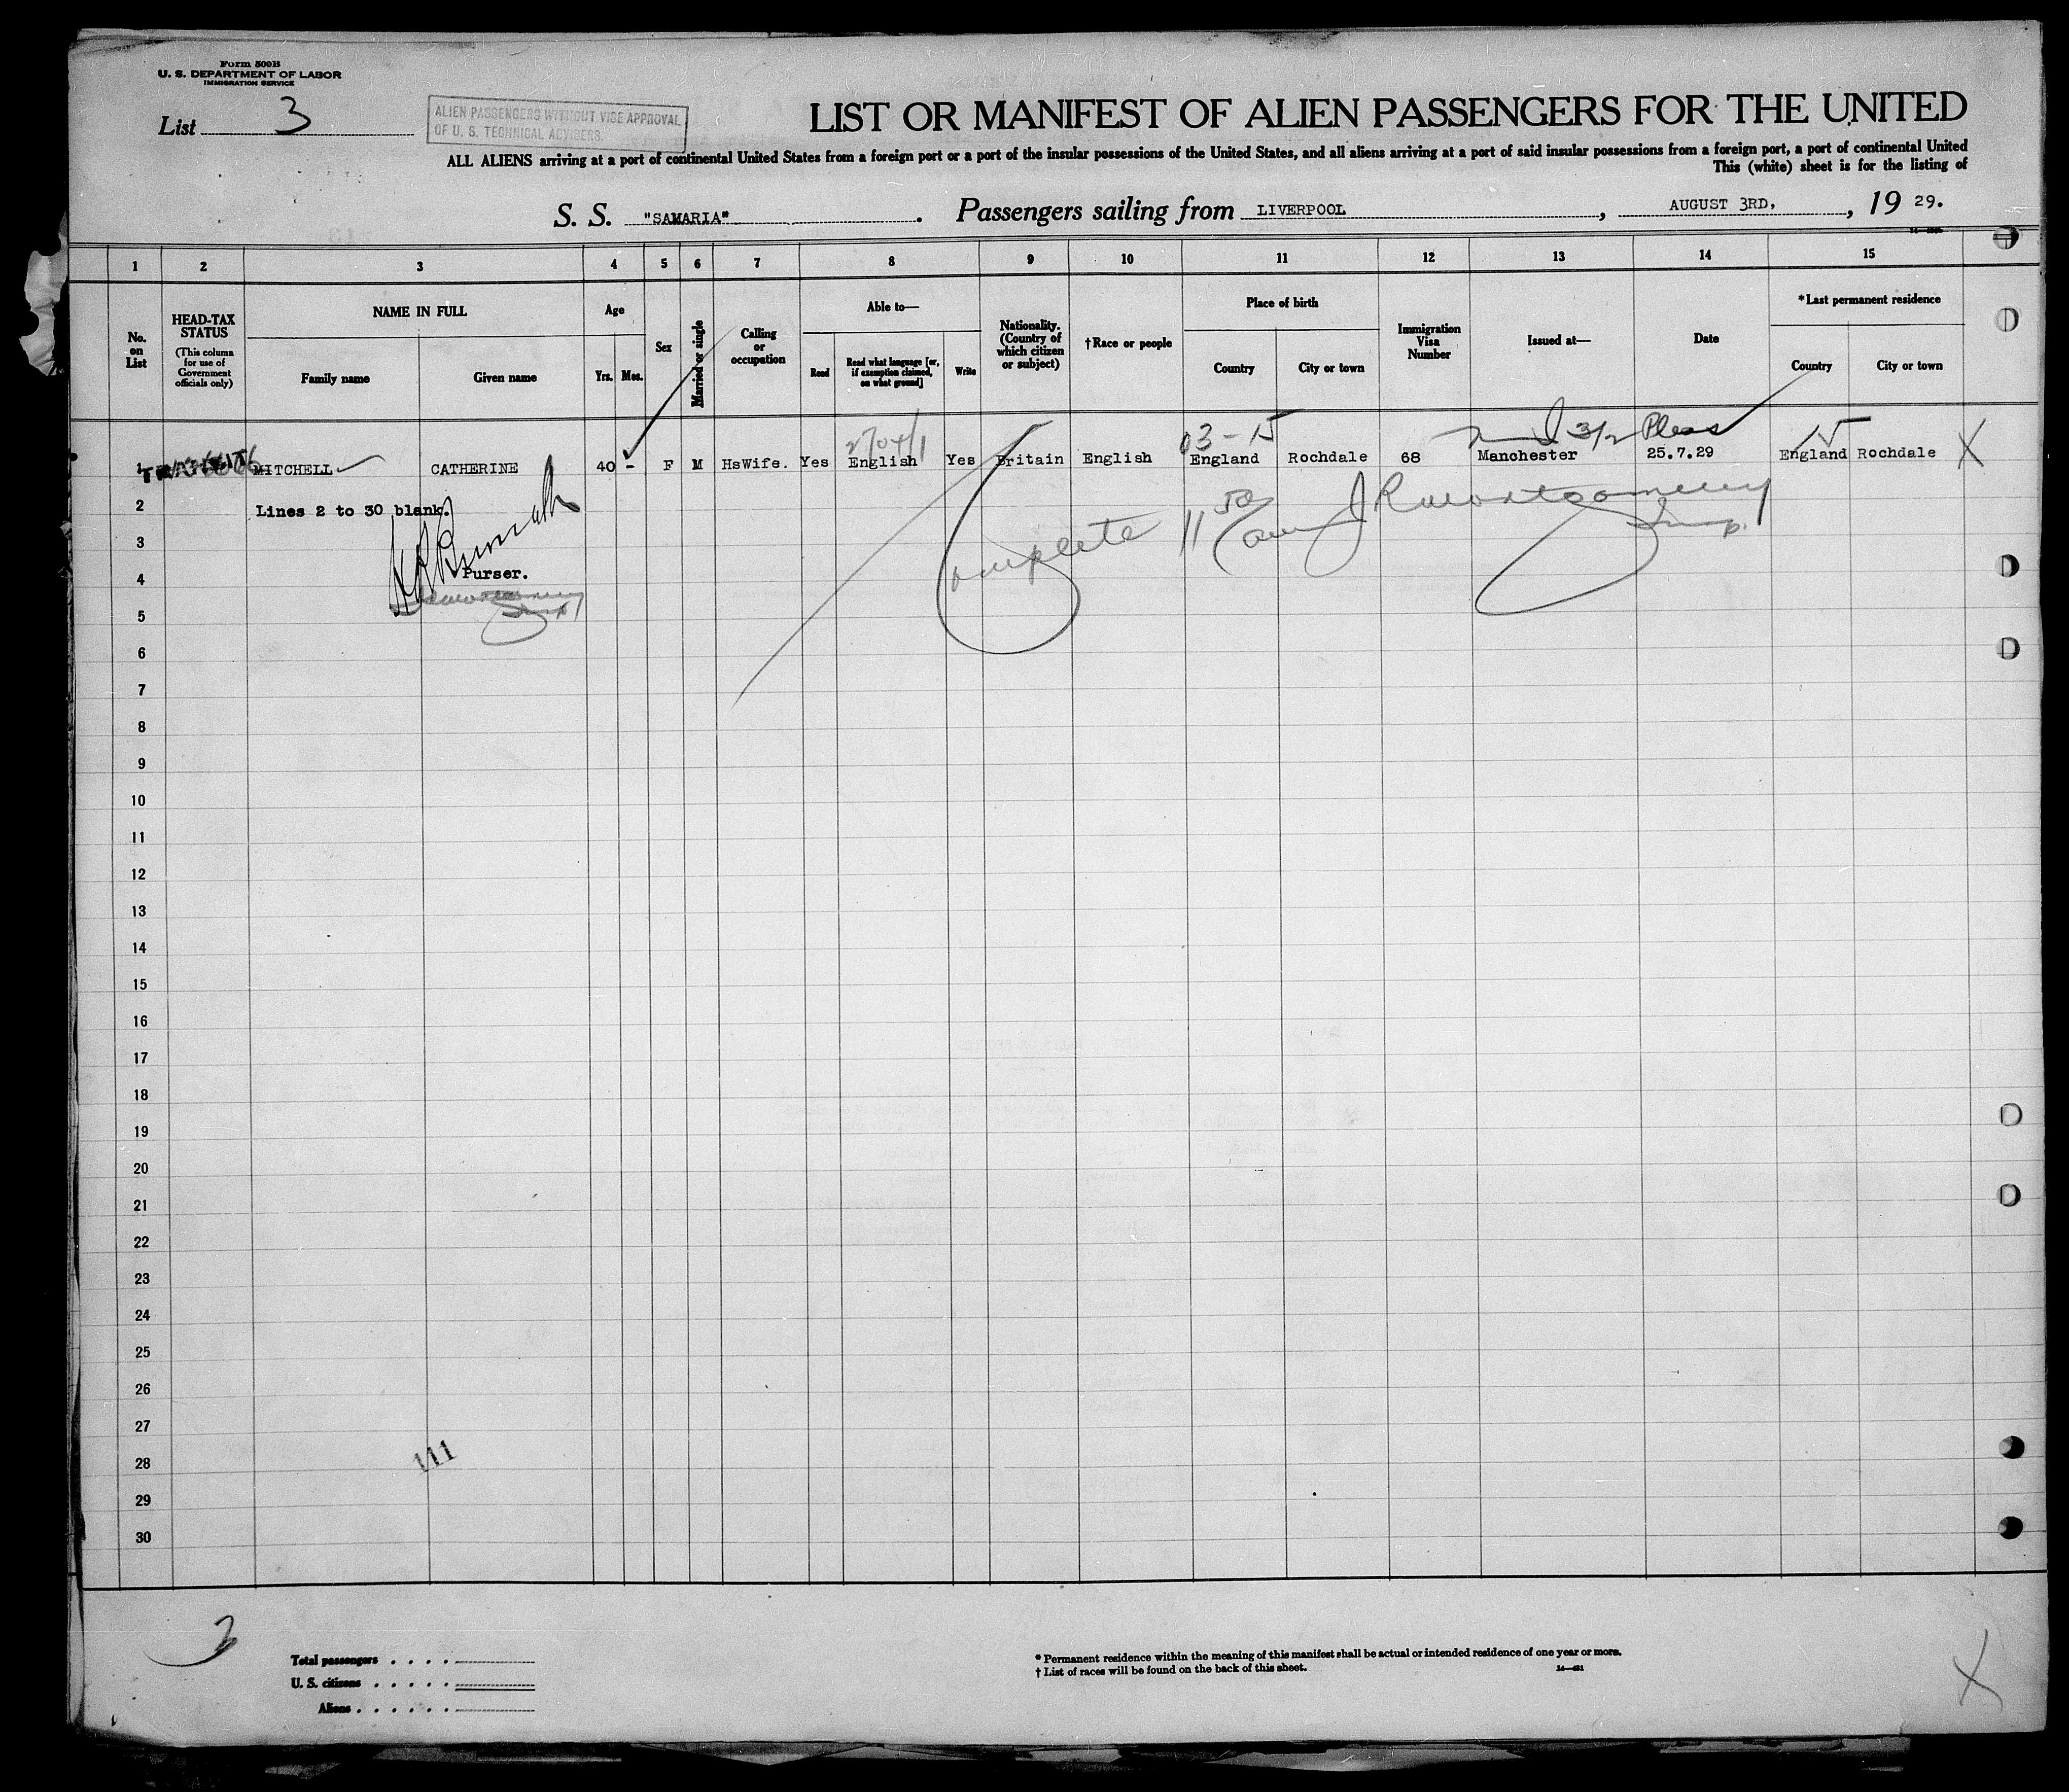 Form 500B
U. S. DEPARTMENT OF LABOR
IMMIGRATION SERVICE
List 3
ALIEN PASSENGERS WITHOUT VISE APPROVAL
OF U. S. TECHNICAL ADVISERS.
LIST OR MANIFEST OF ALIEN PASSENGERS FOR THE UNITED
ALL ALIENS arriving at a port of continental United States from a foreign port or a port of the insular possessions of the United States, and all aliens arriving at a port of said insular possessions from a foreign port, a port of continental United
This (white) sheet is for the listing of
S. S. "SAMARIA". Passengers sailing from LIVERPOOL, AUGUST 3RD, , 19 29.
1 2 3 4 5 6 7 8 9 10 11 12 13 14 15
No. on List
HEAD-TAX STATUS
(This column for use of Government officials only)
NAME IN FULL
Family name
Given name
Age
Yrs.
Mos.
Sex
Married or single
Calling or occupation
Able to—
Read
Read what language [or, if exemption claimed, on what ground]
Write
Nationality. (Country of which citizen or subject)
†Race or people
Place of birth
Country
City or town
Immigration Visa Number
Issued at—
Date
*Last permanent residence
Country
City or town
03-15
3/2
15
1 MITCHELL CATHERINE 40 - F M HsWife. Yes English Yes Britain English England Rochdale 68 Manchester 25.7.29 England Rochdale X
2 Lines 2 to 30 blank.
Complete 11 50 am J R Montgomery Insp.
3
4 Purser.
5
6
7
8
9
10
11
12
13
14
15
16
17
18
19
20
21
22
23
24
25
26
27
28
111
29
30
Total passengers . . . .
U. S. citizens . . . . .
Aliens . . . . . .
* Permanent residence within the meaning of this manifest shall be actual or intended residence of one year or more.
† List of races will be found on the back of this sheet.
X